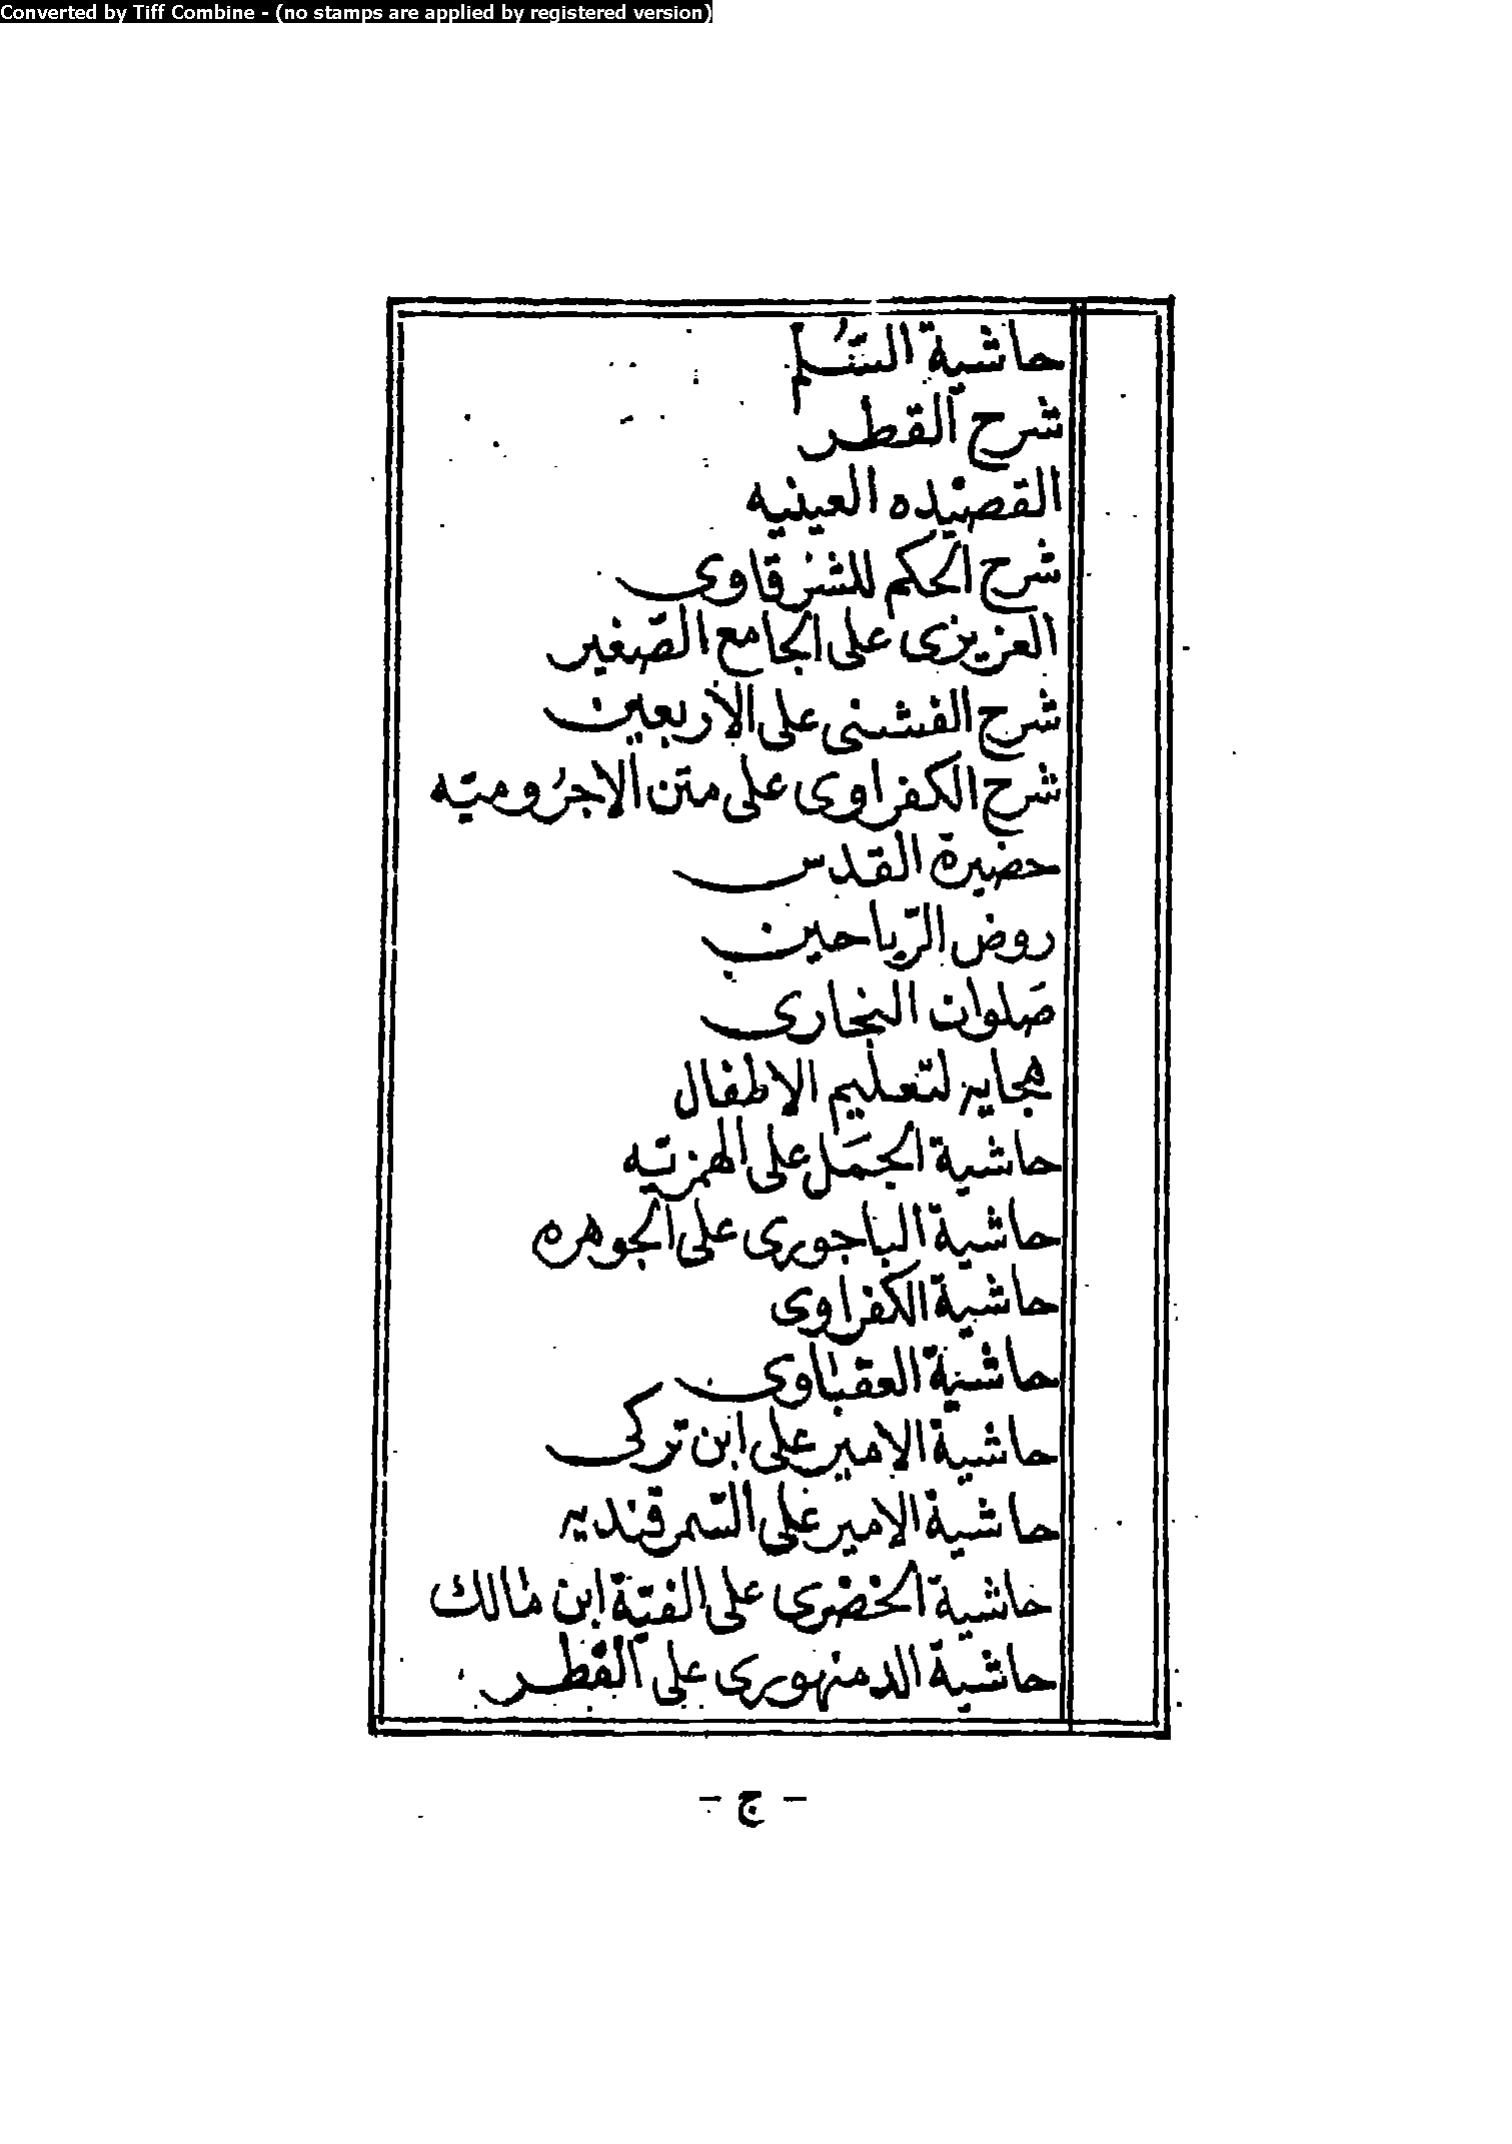 Converted by Tiff Combine - (no stamps are applied by registered version)
حاشية السُّلم
شرح القطر
القصيده العينيه
شرح الحكم للشرقاوى
العزيزى على الجامع الصّغير
شرح الفشنى على الأربعين
شرح الكفراوى على متن الاجرُوميّه
حضيرة القدس
روض الرّياحين
صَلوات البخارى
هجايه لتعليم الاطفال
حاشية الجمَل على الهمزيّه
حاشية الباجورى على الجوهره
حاشية الكفراوى
حاشية العقباوى
حاشية الامير على ابن تركى
حاشية الامير على السّمرقنديه
حاشية الخضرى على الفيّة ابن مالك
حاشية الدمنهورى على القطر
- ج -